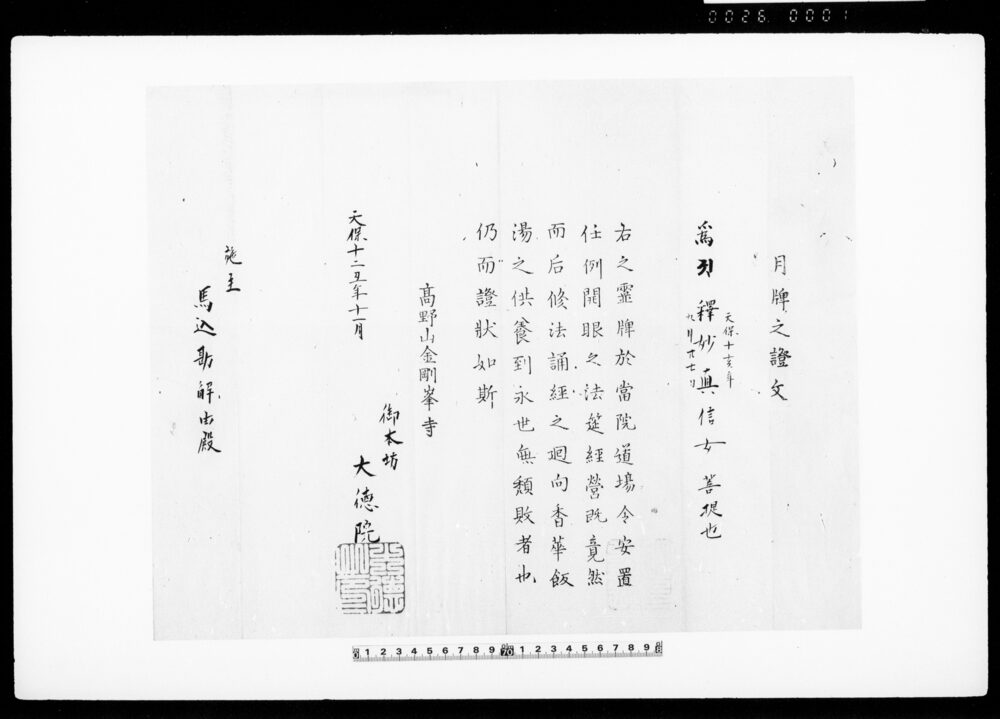 0026 0001
月牌之證文
天保十亥年
九月廿七日
爲 釋妙真信女 菩提也
右之靈牌於當院道場令安置
任例開眼之法筵經營既竟然
而后修法誦經之廻向香華飯
湯之供養到永世無頽敗者也
仍而證狀如斯
高野山金剛峯寺
御本坊
大德院
天保十二丑年十一月
施主
馬込勘解由殿
0 1 2 3 4 5 6 7 8 9 10 1 2 3 4 5 6 7 8 9